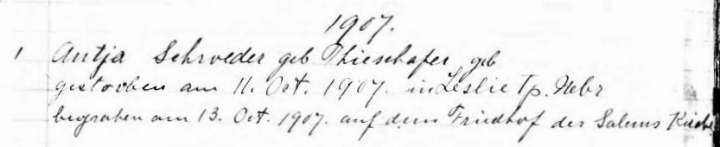 1907.
1 Antja Schroeder geb Thieschafer, geb
gestorben am 11. Oct. 1907. in Leslie Tp. Nebr
begraben am 13. Oct. 1907. auf dem Friedhof der Salems Kirche